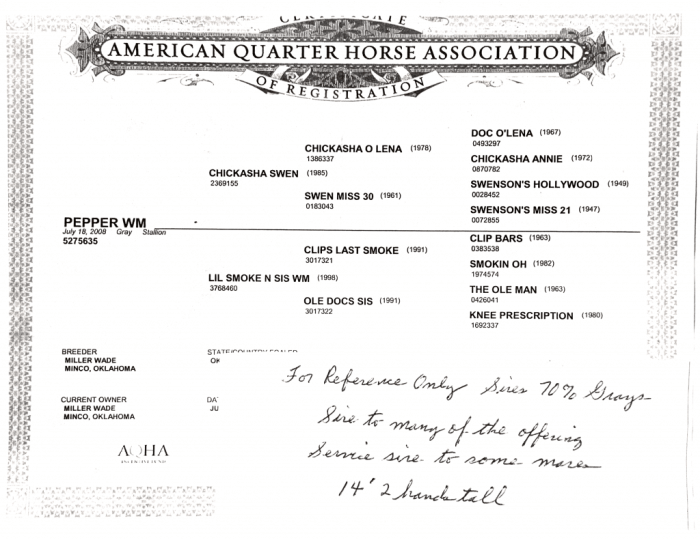 CERTIFICATE
AMERICAN QUARTER HORSE ASSOCIATION
OF REGISTRATION
DOC O'LENA (1967)
0493297
CHICKASHA O LENA (1978)
1386337
CHICKASHA ANNIE (1972)
0870782
CHICKASHA SWEN (1985)
2369155
SWENSON'S HOLLYWOOD (1949)
0028452
SWEN MISS 30 (1961)
0183043
SWENSON'S MISS 21 (1947)
0072855
PEPPER WM
July 18, 2008 Gray Stallion
5275635
CLIP BARS (1963)
0383538
CLIPS LAST SMOKE (1991)
3017321
SMOKIN OH (1982)
1974574
LIL SMOKE N SIS WM (1998)
3768460
THE OLE MAN (1963)
0426041
OLE DOCS SIS (1991)
3017322
KNEE PRESCRIPTION (1980)
1692337
BREEDER
MILLER WADE
MINCO, OKLAHOMA
CURRENT OWNER
MILLER WADE
MINCO, OKLAHOMA
DA
JU
AQHA
INCENTIVE FUND
For Reference Only Sires 70% Grays
Sire to many of the offering
Service sire to some mares
14' 2 hands tall